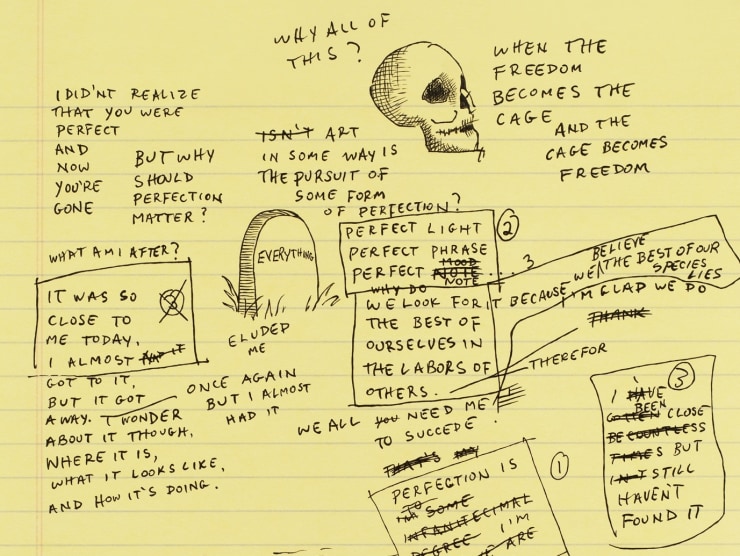 WHY ALL OF
THIS?
WHEN THE
FREEDOM
BECOMES THE
CAGE
AND THE
CAGE BECOMES
FREEDOM
I DID'NT REALIZE
THAT YOU WERE
PERFECT
AND
NOW
YOU'RE
GONE
BUT WHY
SHOULD
PERFECTION
MATTER?
ISN'T ART
IN SOME WAY IS
THE PURSUIT OF
SOME FORM
OF PERFECTION?
WHAT AM I AFTER?
IT WAS SO
CLOSE TO
ME TODAY,
I ALMOST
GOT TO IT,
BUT IT GOT
AWAY. I WONDER
ABOUT IT THOUGH,
WHERE IT IS,
WHAT IT LOOKS LIKE,
AND HOW IT'S DOING.
3
ONCE AGAIN
BUT I ALMOST
HAD IT
EVERYTHING
ELUDED
ME
2
PERFECT LIGHT
PERFECT PHRASE
MOOD
PERFECT NOTE.... 3
NOTE
WHY DO
WE LOOK FOR IT BECAUSE
THE BEST OF
OURSELVES IN
THE LABORS OF
OTHERS.
BELIEVE
WE THE BEST OF OUR
SPECIES LIES
I'M GLAD WE DO
THANK
THEREFOR
WE ALL YOU NEED ME
TO SUCCEDE.
THAT'S MY
1
PERFECTION IS
TO
SOME
INFANITECIMAL
DEGREE I'M
ARE
3
I HAVE
BEEN
GOTTEN CLOSE
BE COUNTLESS
TIMES BUT
I STILL
HAVEN'T
FOUND IT